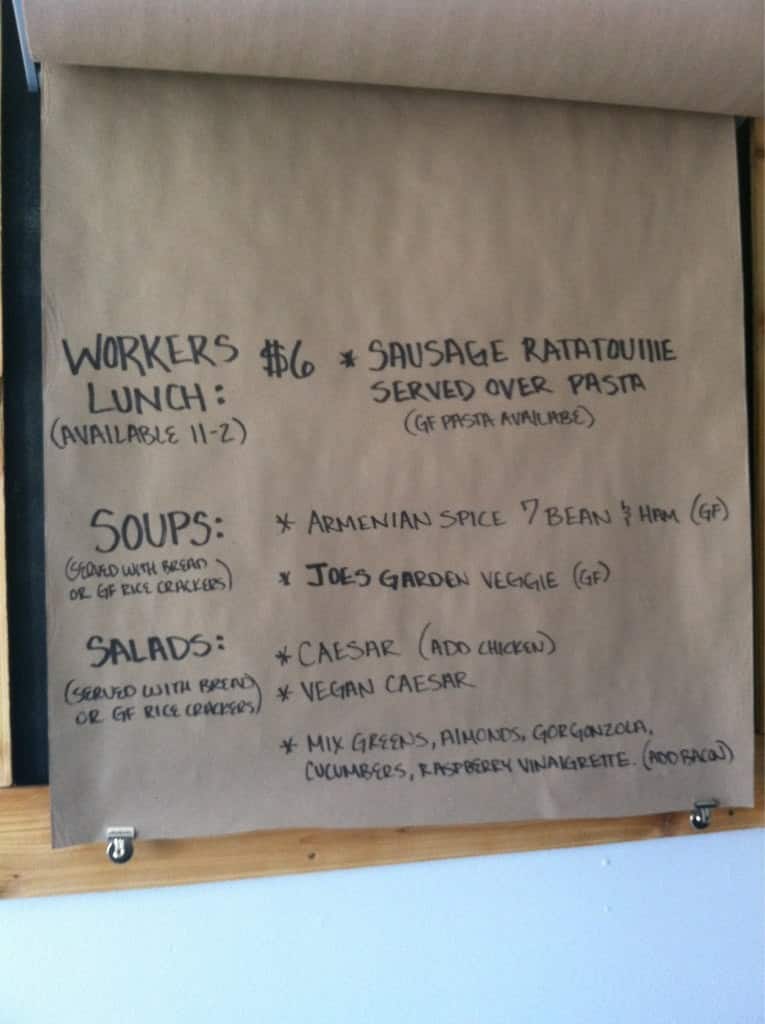 WORKERS $6 * SAUSAGE RATATOUIIIE
LUNCH: SERVED OVER PASTA
(AVAILABLE 11-2) (GF PASTA AVAILABE)
SOUPS: * ARMENIAN SPICE 7 BEAN & HAM (GF)
(SERVED WITH BREAD
OR GF RICE CRACKERS) * JOES GARDEN VEGGIE (GF)
SALADS: * CAESAR (ADD CHICKEN)
(SERVED WITH BREAD * VEGAN CAESAR
OR GF RICE CRACKERS)
* MIX GREENS, AlMONDS, GORGONZOLA,
CUCUMBERS, RASPBERRY VINAIGRETTE. (ADD BACON)